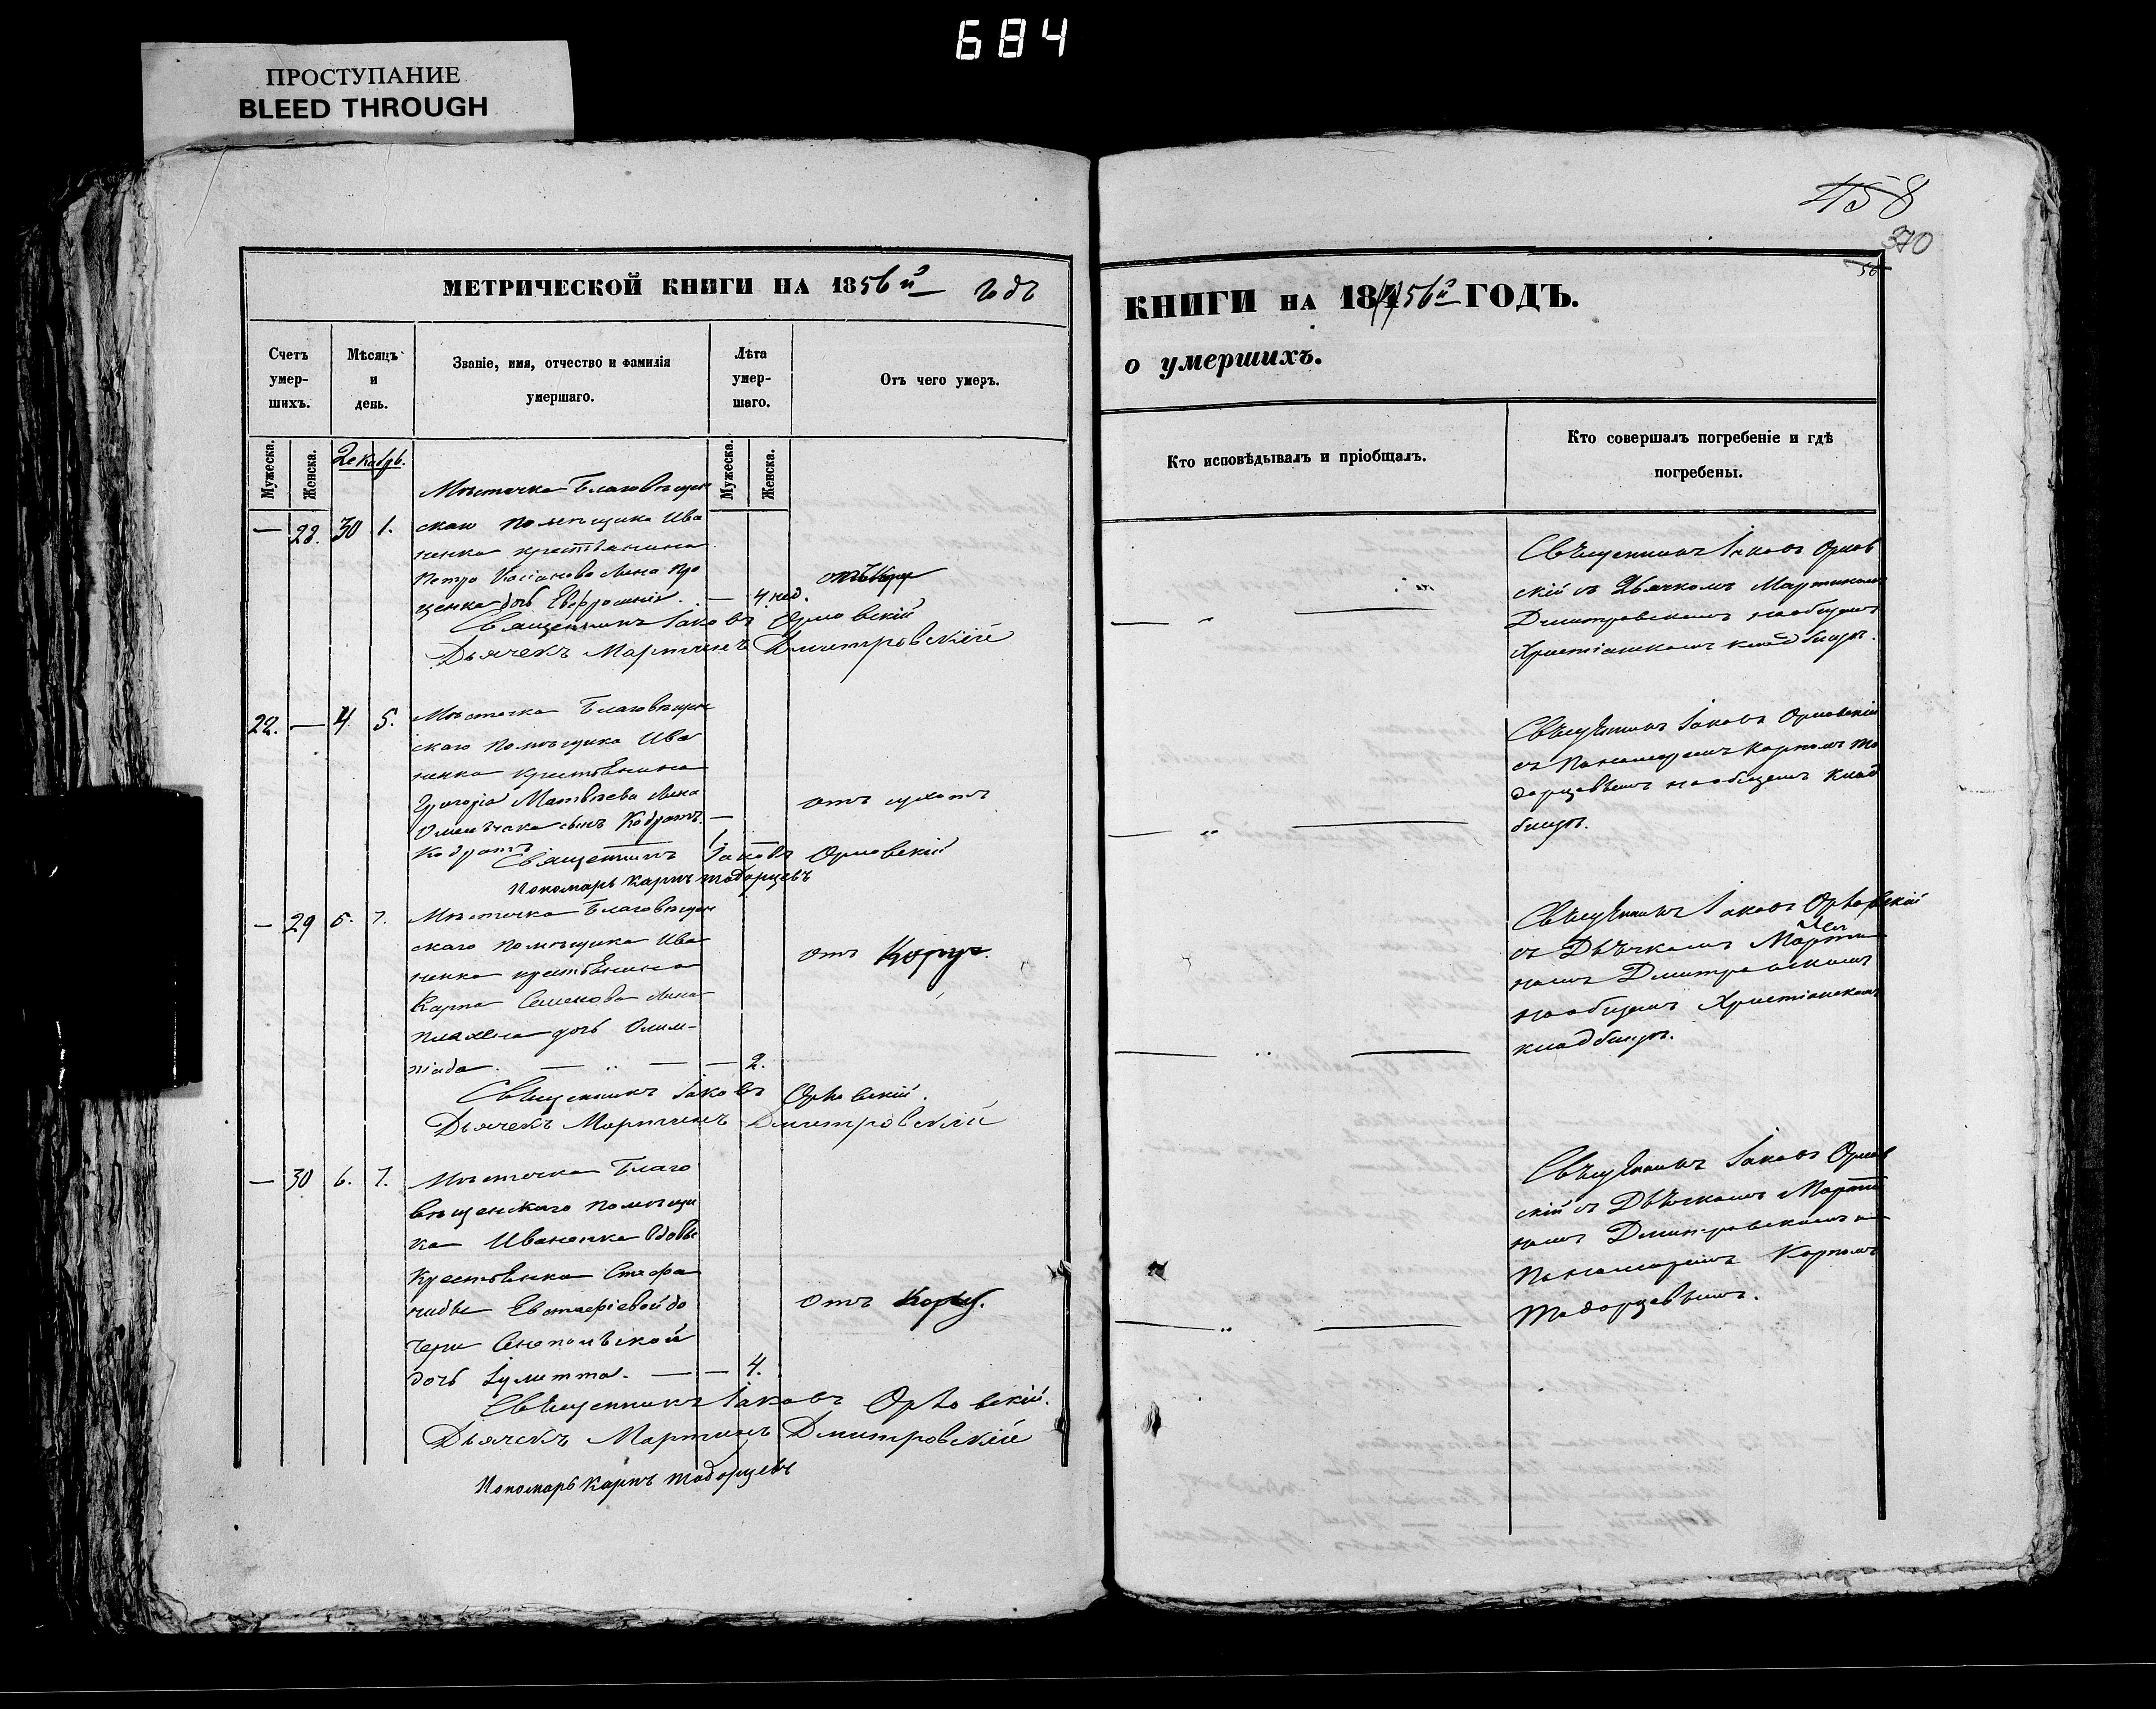 684
ПРОСТУПАНИЕ
BLEED THROUGH
МЕТРИЧЕСКОЙ КНИГИ НА 1856й годъ
Счетъ умер-шихъ.
Мѣсяцъ и день.
Званіе, имя, отчество и фамилія умершаго.
Лѣта умер-шаго.
Отъ чего умеръ.
Мужеска.
Женска.
Декабрь.
Мужеска.
Женска.
Мѣстечка Благовѣщен
— 28. 30 1. скаго помѣщика Ива
ненка крестьянина
Петра
ценка дочь Евфросинія. — 4 нед.
Священникъ Іаковъ Орловскій
Дьячекъ Мартинъ Дмитровскій
22. — 4. 5. Мѣстечка Благовѣщен
скаго помѣщика Ива
ненка крестьянина
Григорія Матвѣева сына
сынъ Кодратъ. —
отъ сухотъ
Кодратъ 1
Священникъ Іаковъ Орловскій
Пономарь Карпъ Тодорцевъ
— 29 5. 7. Мѣстечка Благовѣщен
скаго помѣщика Ива
ненка крестьянина
отъ Кору.
Карпа Семенова сына
дочь Олим-
піада. — „ — — 2.
Священникъ Іаковъ Орловскій.
Дьячекъ Мартинъ Дмитровскій
— 30 6. 7. Мѣстечка Благо
вѣщенскаго помѣщи
ка Иваненка вдовы
крестьянки Стефа
ниды Евстафіевой до
отъ Кору.
чери
дочь Іулитта. — — 4.
Священникъ Іаковъ Орловскій.
Дьячекъ Мартинъ Дмитровскій
Пономарь Карпъ Тодорцевъ
458
370
КНИГИ НА 184 56й ГОДЪ.
о умершихъ.
Кто исповѣдывалъ и пріобщалъ.
Кто совершалъ погребеніе и гдѣ погребены.
Священникъ Іаковъ Орлов
скій съ Дьячкомъ Мартиномъ
Дмитровскимъ на общемъ
Христіанскомъ кладбищѣ.
Священникъ Іаковъ Орловскій
съ Пономаремъ Карпомъ То
дорцевымъ на общемъ клад
бищѣ.
Священникъ Іаковъ Орловскій
съ Дьячкомъ Марти
номъ Дмитровскимъ
на общемъ Христіанскомъ
кладбищѣ.
Священникъ Іаковъ Орлов
скій съ Дьячкомъ Марти
номъ Дмитровскимъ и
Пономаремъ Карпомъ
Тодорцевымъ.